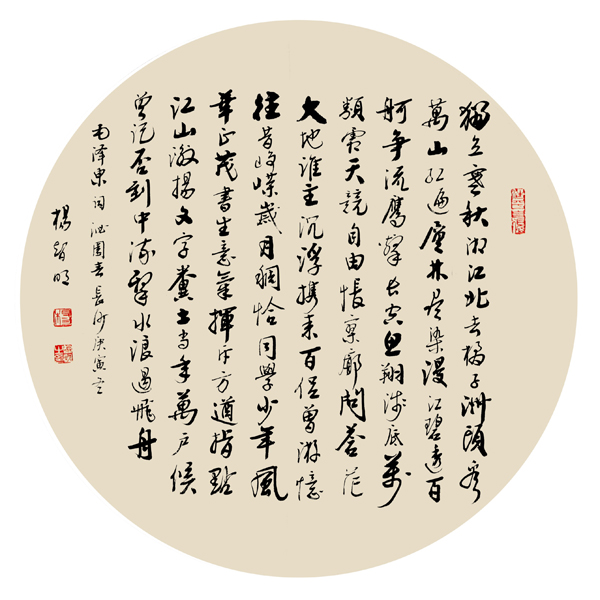 獨立寒秋湘江北去橘子洲頭看
萬山紅遍層林盡染漫江碧透百
舸爭流鷹擊長空魚翔淺底萬
類霜天競自由悵寥廓問蒼茫
大地誰主沉浮攜來百侶曾游憶
往昔崢嶸歲月稠恰同學少年風
華正茂書生意氣揮斥方遒指點
江山激揚文字糞土當年萬户侯
曾記否到中流擊水浪遏飛舟
毛澤東詞沁園春長沙庚寅
楊智明